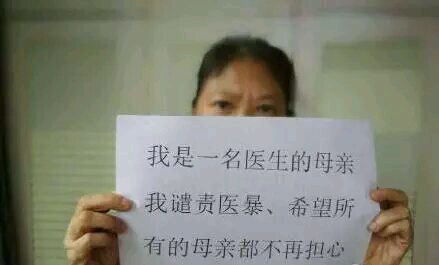 我是一名医生的母亲
我谴责医暴、希望所
有的母亲都不再担心